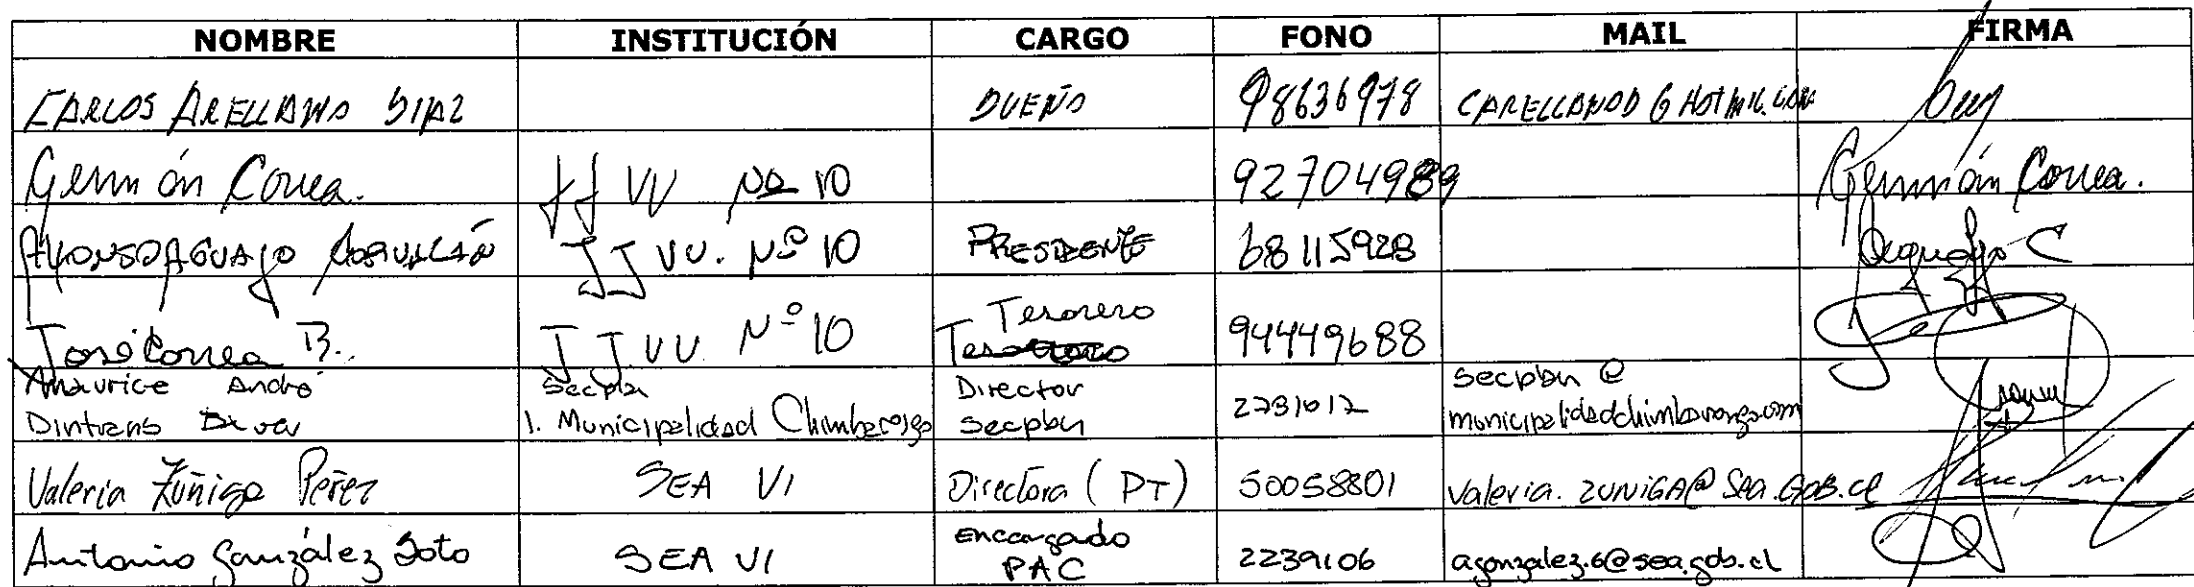 NOMBRE INSTITUCIÓN CARGO FONO MAIL FIRMA
CARLOS ARELLANO DIAZ DUEÑO 98636978 CARELLANOD@HOTMAIL.COM
Germán Correa. JJ VV Nº 10 92704989 Germán Correa.
JJ VV. Nº 10 PRESIDENTE 68115928
José Correa B. JJ VV Nº 10 Tesorero 94449688
Maurice André Secplan Director secplan @
Dintrans I. Municipalidad Chimbarongo secplan 2781012 municipalidadchimbarongo.com
Valeria Zúñiga Pérez SEA VI Directora (PT) 50058801 valeria.zuniga@sea.gob.cl
Antonio González Soto SEA VI Encargado PAC 2239106 agonzalez.6@sea.gob.cl